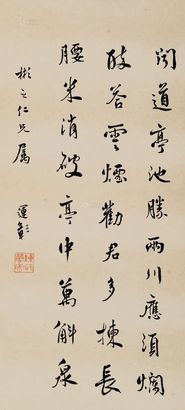 聞道亭池勝兩川應須爛
醉答雲煙勸君多揀長
腰米消破亭中萬斛泉
彬之仁兄屬
運彰